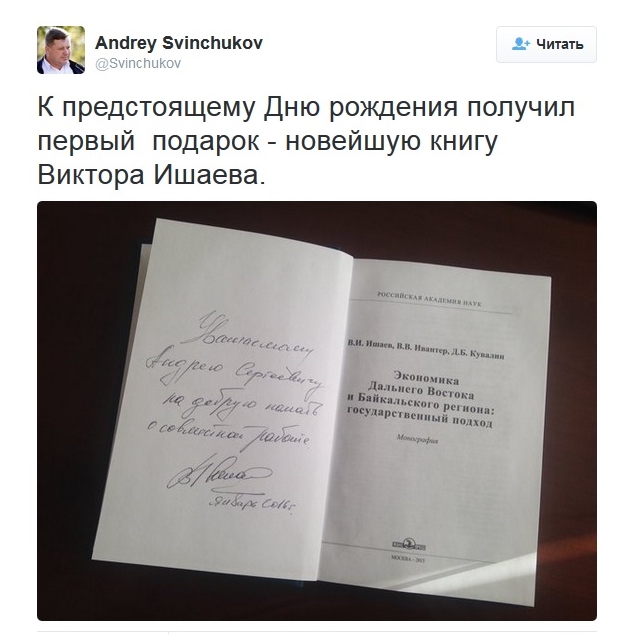 Andrey Svinchukov
@Svinchukov
Читать
К предстоящему Дню рождения получил
первый подарок - новейшую книгу
Виктора Ишаева.
Уважаемому
Андрею Сергеевичу
на добрую память
о совместной работе.
январь 2016г.
РОССИЙСКАЯ АКАДЕМИЯ НАУК
В.И. Ишаев, В.В. Ивантер, Д.Б. Кувалин
Экономика
Дальнего Востока
и Байкальского региона:
государственный подход
Монография
МОСКВА - 2015